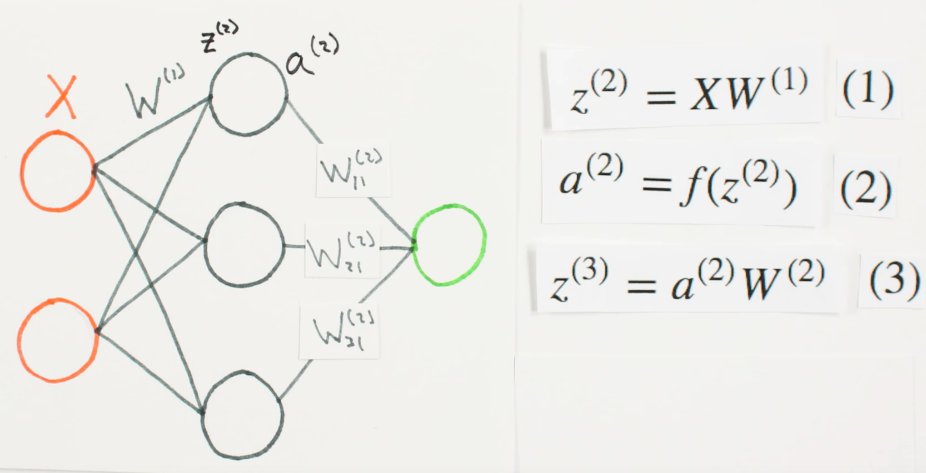 X
W⁽¹⁾
z⁽²⁾
a⁽²⁾
W₁₁⁽²⁾
W₂₁⁽²⁾
W₃₁⁽²⁾
z⁽²⁾ = XW⁽¹⁾ (1)
a⁽²⁾ = f(z⁽²⁾) (2)
z⁽³⁾ = a⁽²⁾W⁽²⁾ (3)